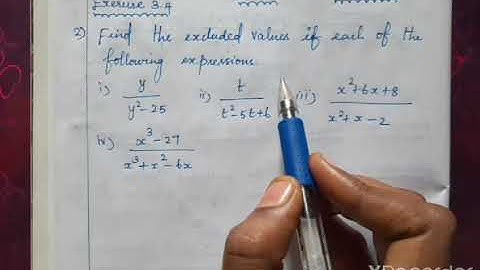 Exercise 3.4
2) Find the excluded values if each of the
following expressions
i) y/y²-25 ii) t/t²-5t+6 iii) x²+6x+8/x²+x-2
iv) x³-27/x³+x²-6x